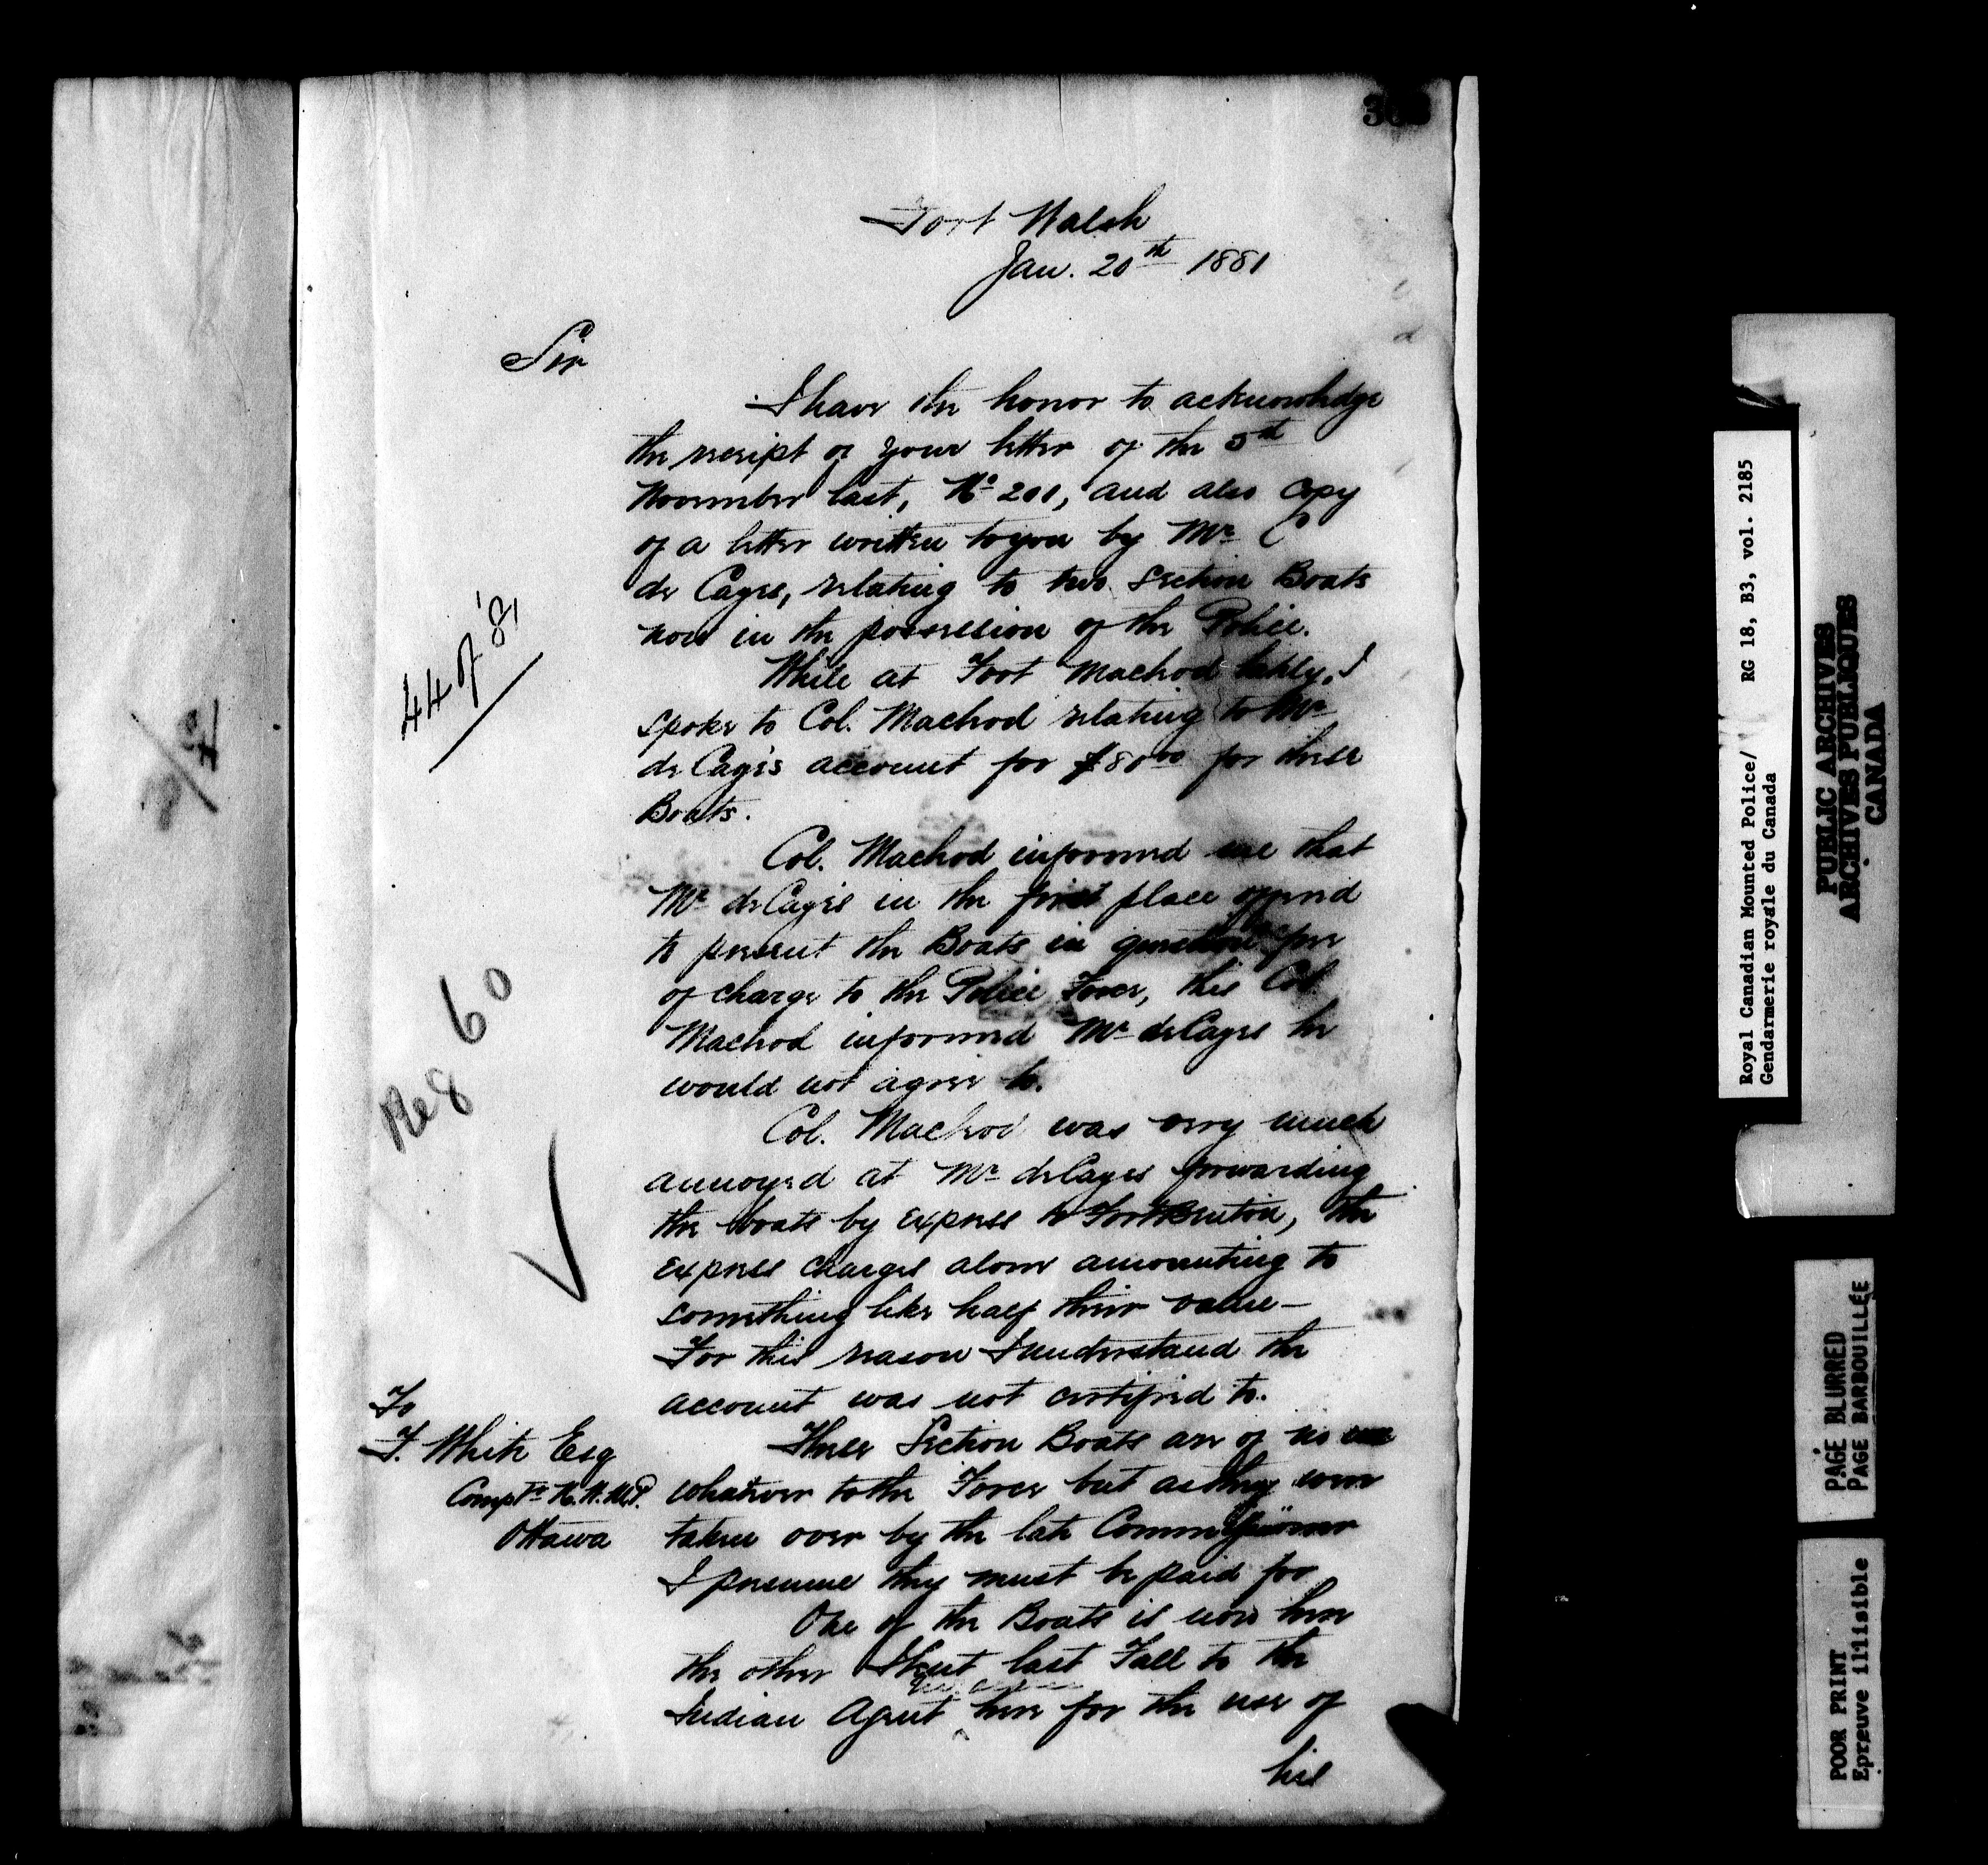 Fort Walsh
Jan. 20th 1881
Sir
I have the honor to acknowledge
the receipt of your letter of the 5th
November last, No 201, and also copy
of a letter written to you by Mr
de Cayes, relating to two Section Boats
now in the possession of the Police.
While at Fort Macleod lately, I
spoke to Col. Macleod relating to Mr
de Cayes account for $80.00 for these
Boats.
Col. Macleod informed me that
Mr de Cayes in the first place offered
to present the Boats in question free
of charge to the Police Force, this Col.
Macleod informed Mr de Cayes he
would not agree to.
Col. Macleod was very much
annoyed at Mr de Cayes forwarding
the boats by express to Fort Benton, the
express charges alone amounting to
something like half their value -
For this reason I understand the
account was not certified to.
These Section Boats are of no use
whatever to the Force but as they were
taken over by the late Commissioner
I presume they must be paid for
One of the Boats is now here
the other I lent last Fall to the
Indian Agent here for the use of
his
To
F. White Esq
Comptr N.W.M.P.
Ottawa
44 of '81
Re 860
Royal Canadian Mounted Police/ RG 18, B3, vol. 2185
Gendarmerie royale du Canada
PUBLIC ARCHIVES
ARCHIVES PUBLIQUES
CANADA
PAGE BLURRED
PAGE BARBOUILLÉE
POOR PRINT
Epreuve illisible